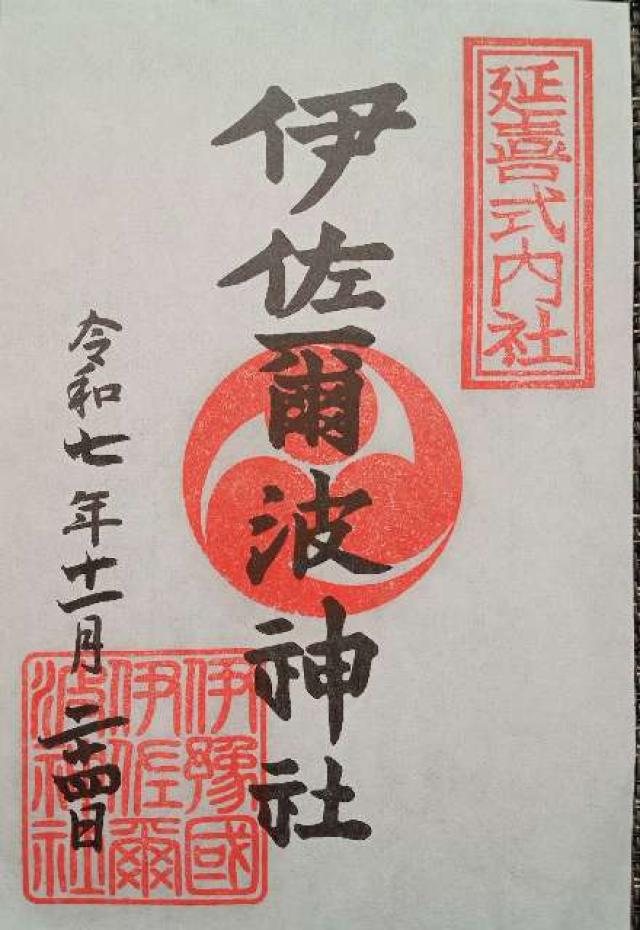 延喜式内社
伊佐爾波神社
令和七年十一月二十四日
伊豫國
伊佐爾
波神社